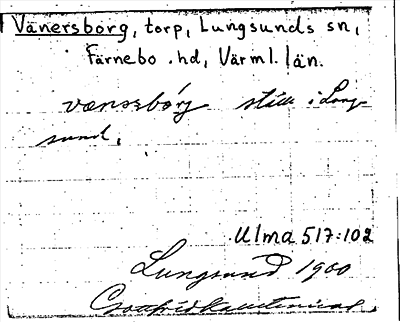 Vänersborg, torp, Lungsunds sn,
Färnebo hd, Värml. län.
vænssbórg ställe i Lung-
sund.
Ulma 517:102
Lungsund 1900